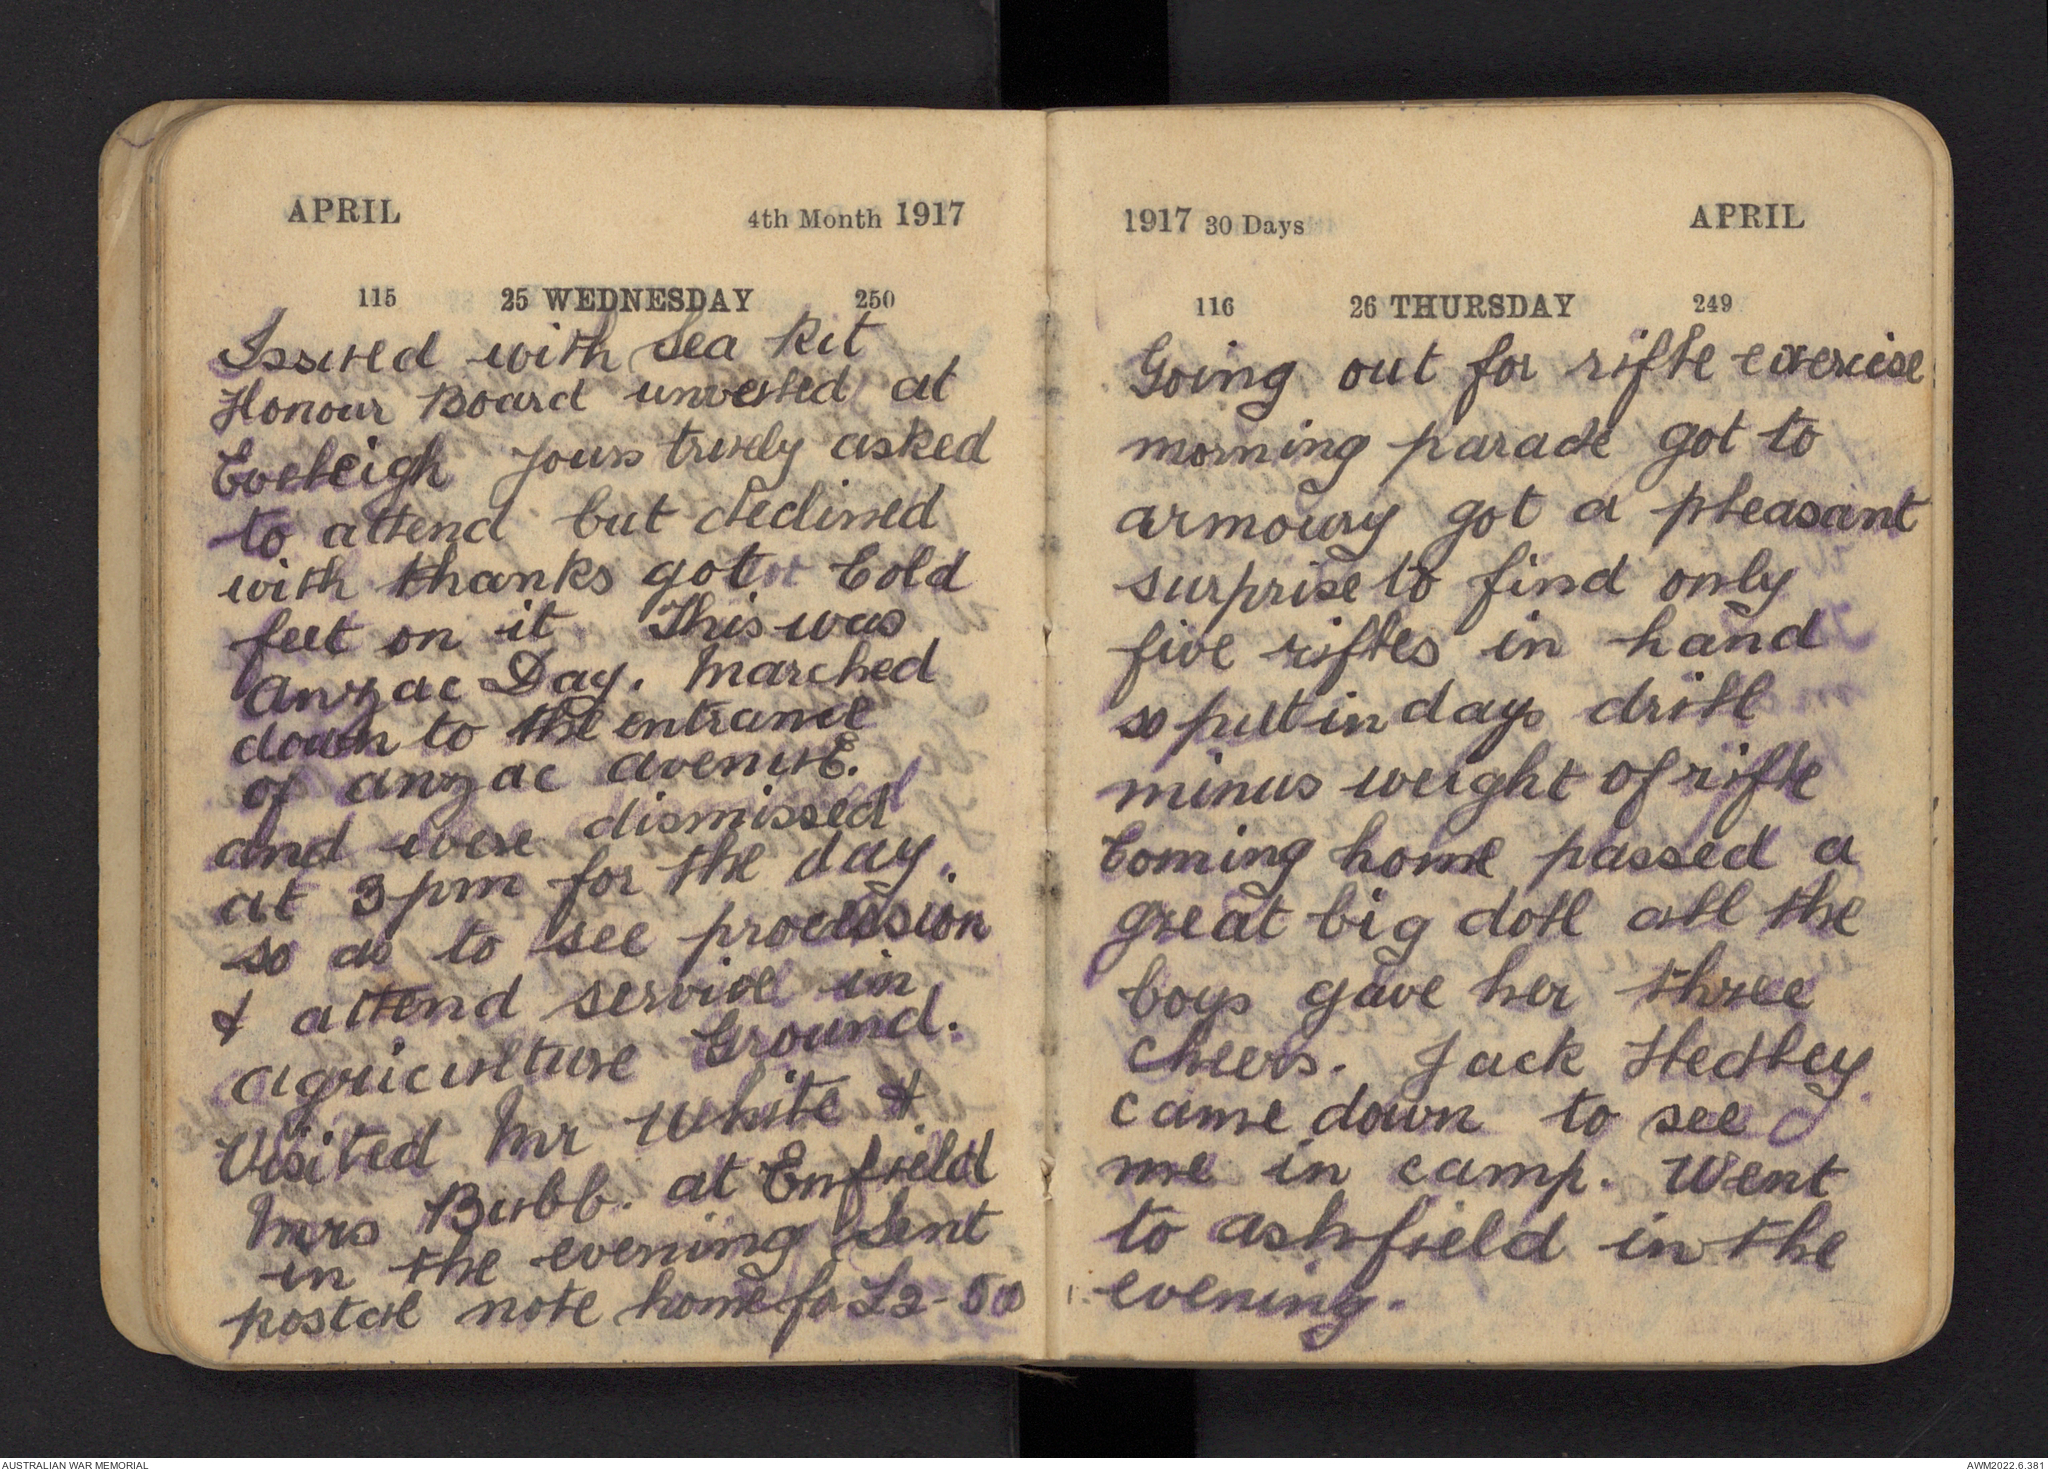 APRIL 4th Month 1917
115 25 WEDNESDAY 250
Issued with Sea Kit
Honour Board unveiled at
Eveleigh yours truely asked
to attend but declined
with thanks got Cold
feet on it This was
Anzac Day. Marched
down to the entrance
of anzac avenue.
and were dismissed
at 3pm for the day.
so as to see procession
& attend service in
agriculture Ground.
Visited Mr White &
Mrs Bubb. at Enfield
in the evening Sent
postal note home for
1917 30 Days APRIL
116 26 THURSDAY 249
Going out for rifle exercise
morning parade got to
armoury got a pleasant
surprise to find only
five rifles in hand
so put in days drill
minus weight of rifle
Coming home passed a
great big doll all the
boys gave her three
cheers. Jack Hedley
came down to see
me in camp. Went
to ashfield in the
evening.
AUSTRALIAN WAR MEMORIAL
AWM2022.6.381